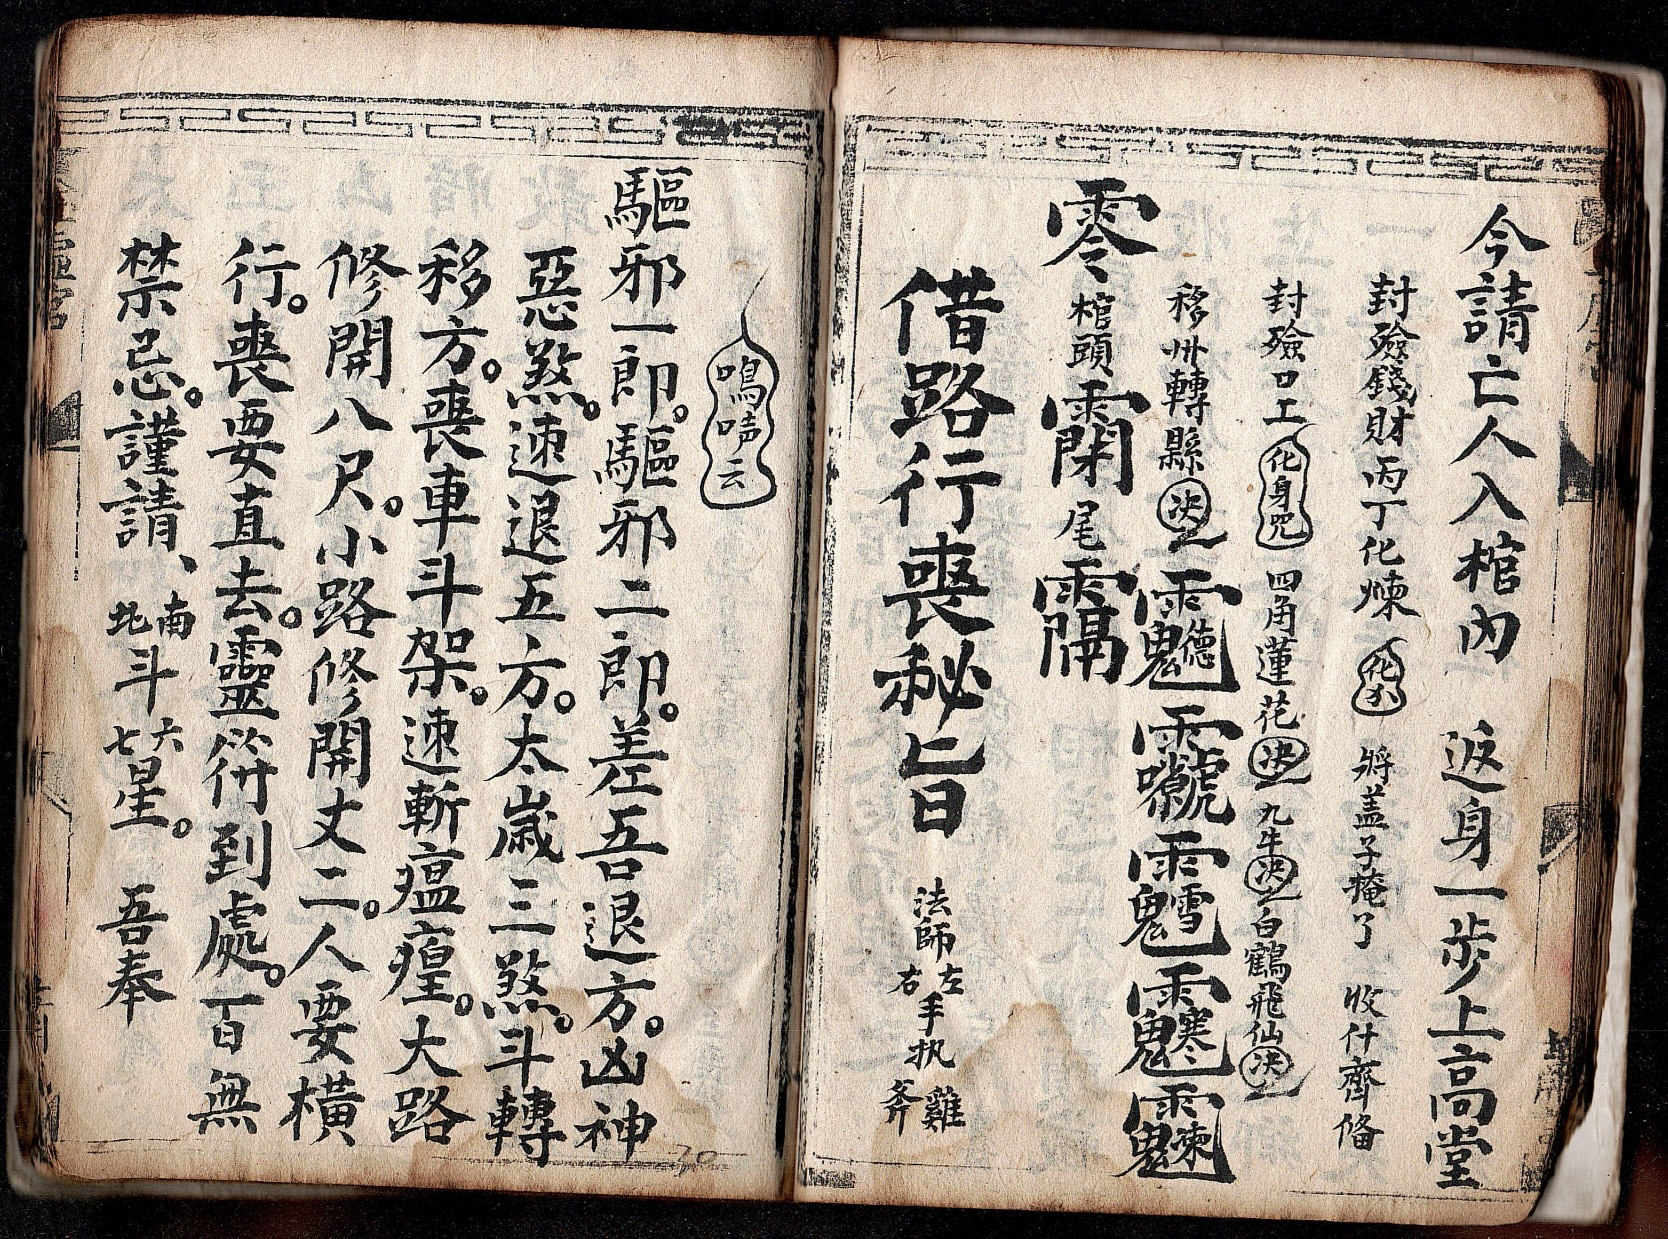 今請亡人入棺內 返身一步上高堂
封殮錢財丙丁化煉 將盖子掩了 收什齊俻
封殮口工 化身咒 四角蓮花决 九牛决 白鶴飛仙决
移州轉縣决
零 棺頭 尾
借路行喪秘旨 法師左右手执雞斧
鳴嘑云
驅邪一郎。驅邪二郎。差吾退方。凶神
惡煞。速退五方。太歲三煞。斗轉
移方。喪車斗架。速斬瘟瘟。大路
修開八尺。小路修開丈二。人要橫
行。喪要直去。靈符到處。百無
禁忌。謹請、南北斗六七星。吾奉